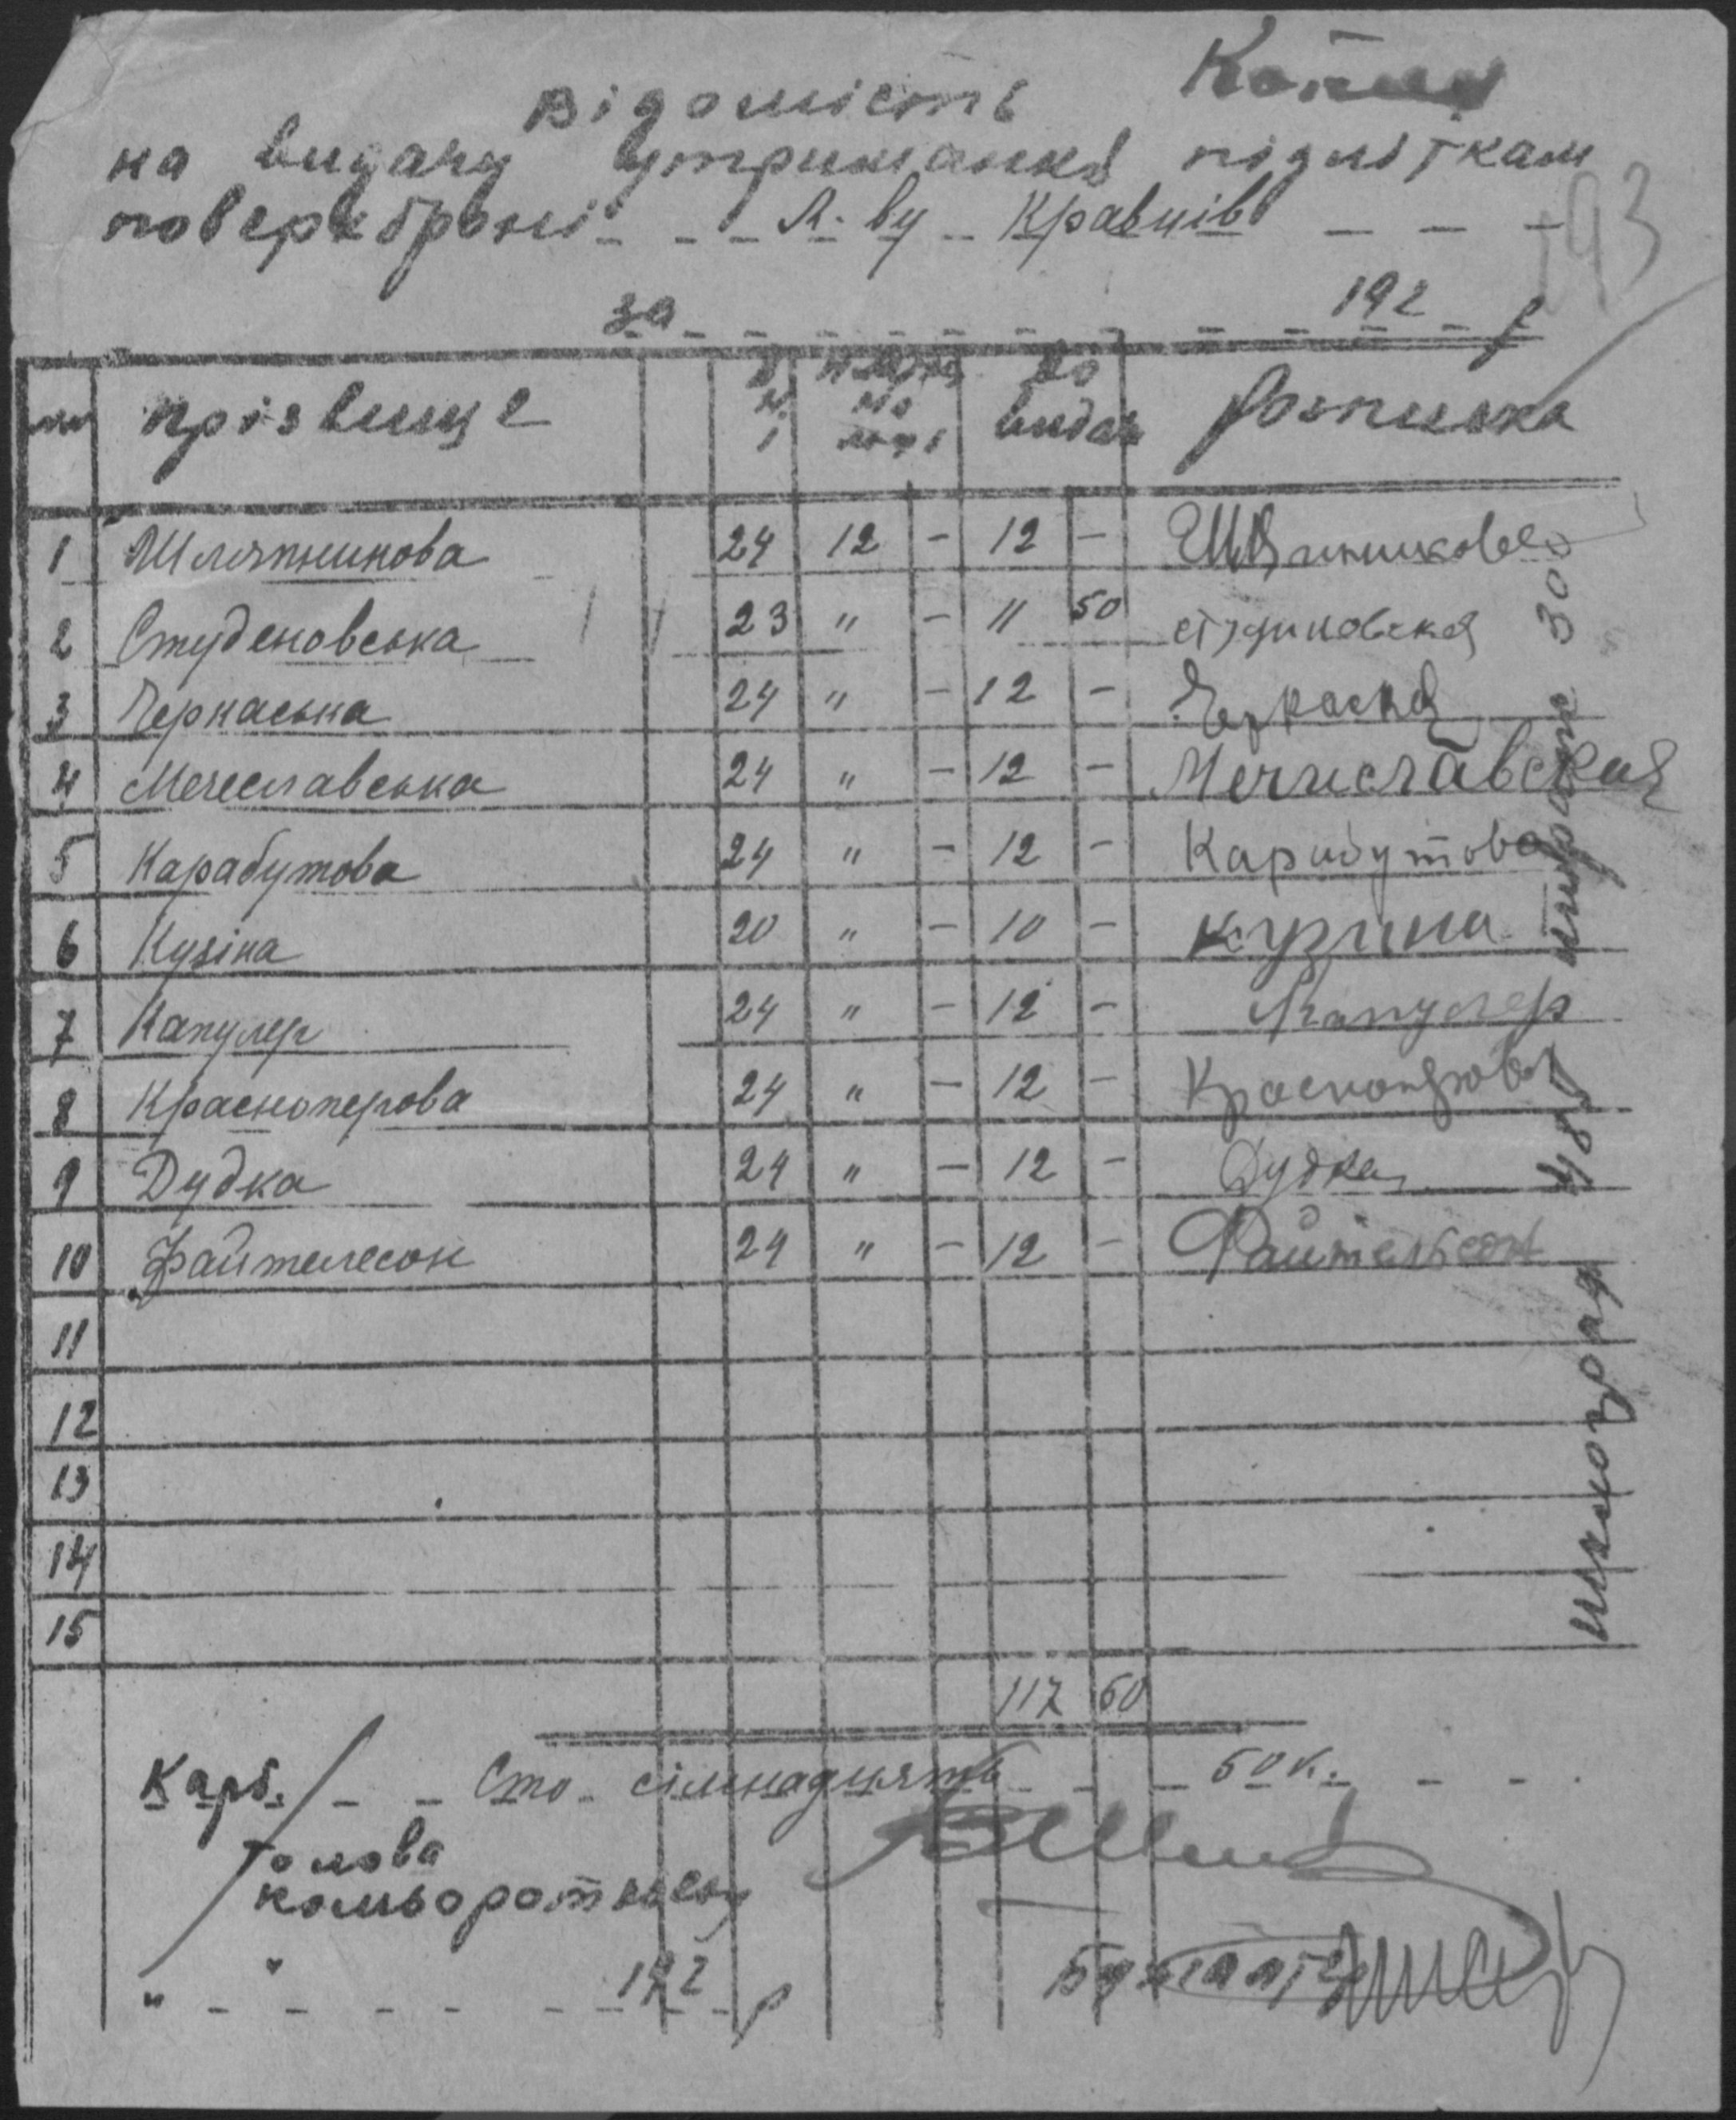 Копия
Відомість
на видачу утримання підліткам
поверхброні - - - Л. ву - Кравців - - -
193
за - - - - - - - - 192 - р
прізвище видач Розписка
1 Шляпникова 24 12 - 12 - Шляпникова
2 Студеновська 23 " - 11 50 Студиновская
3 Черкаська 24 " - 12 - Черкаская
4 Мечеславська 24 " - 12 - Мечиславская
5 Карабутова 24 " - 12 - Карабутова
6 Кузіна 20 " - 10 - Кузина
7 Капулер 24 " - 12 - Капулер
8 Красноперова 24 " - 12 - Красноперова
9 Дудка 24 " - 12 - Дудка
10 Файтелесон 24 " - 12 - Файтельсон
11
12
13
14
15
117 50
Карб. - - Сто - сімнадцять - - - 50 к. - - -
Голова
" " - - - - - 192 - р Бухгалтер
485 300